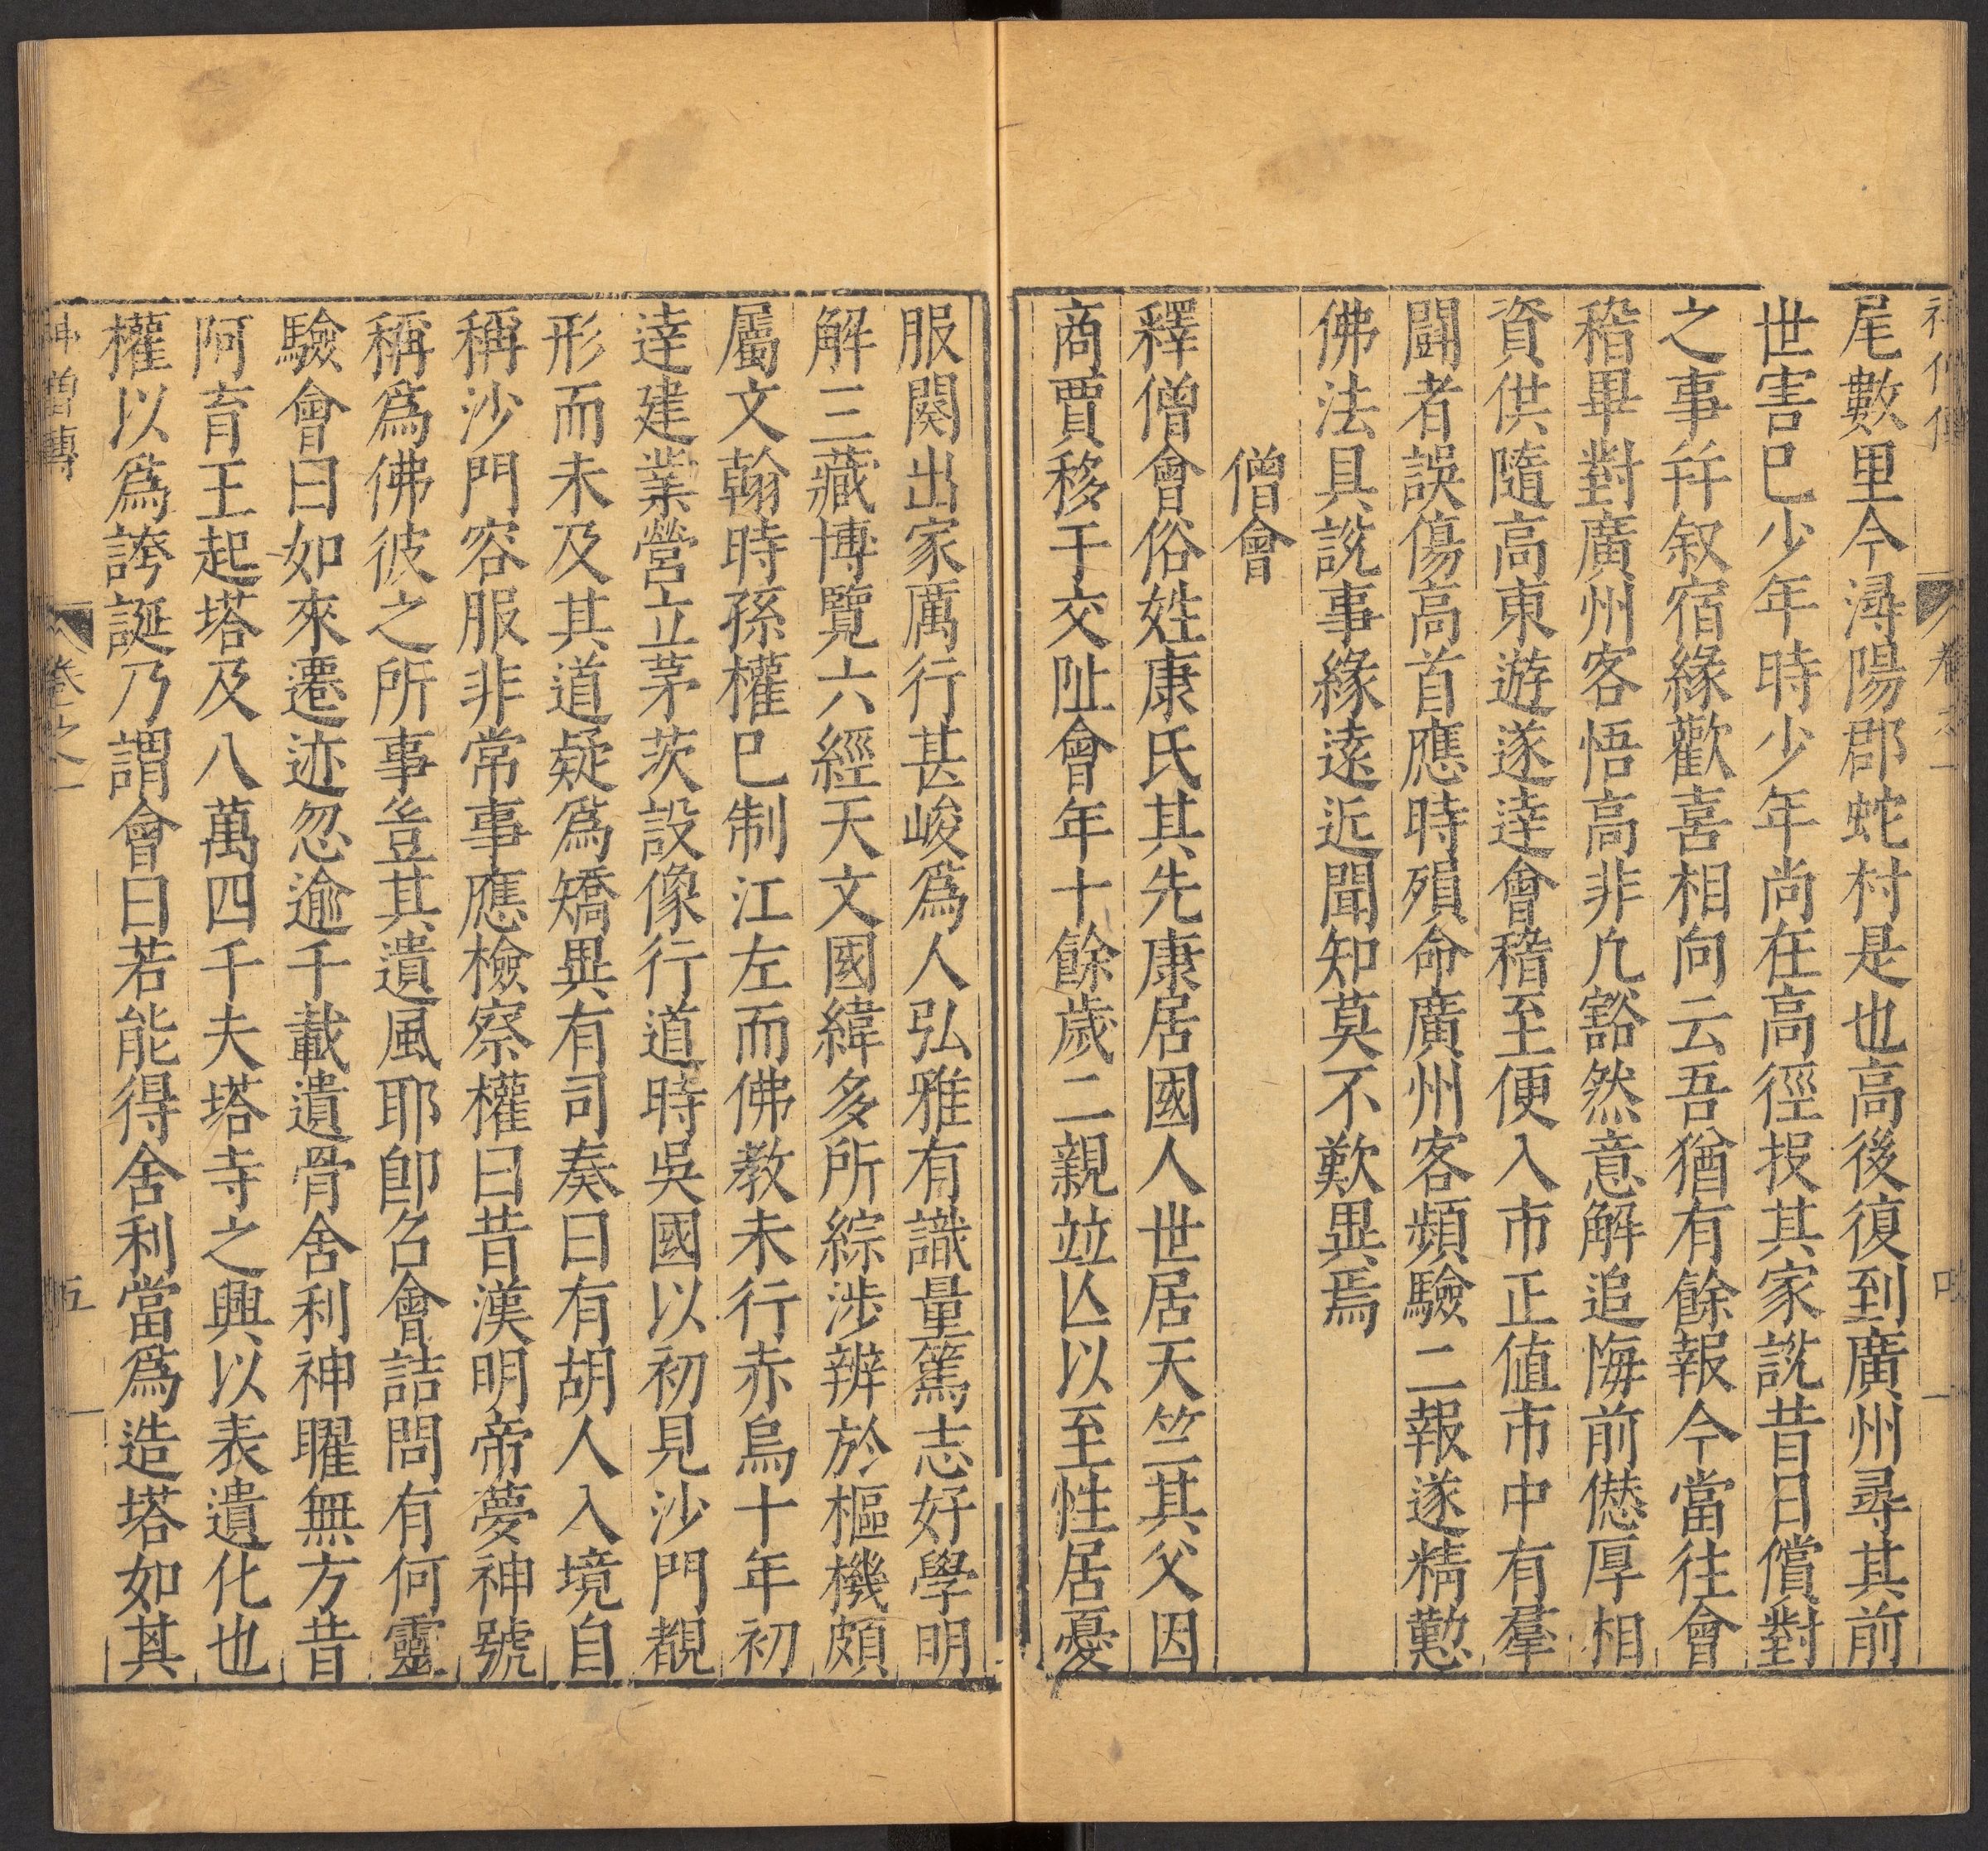 尾數里今潯陽郡蛇村是也高後復到廣州尋其前
世害巳少年時少年尚在高徑投其家說昔日償對
之事幷叙宿緣歡喜相向云吾猶有餘報今當往會
稽畢對廣州客悟高非凢豁然意解追悔前愆厚相
資供隨高東遊遂達會稽至便入市正值市中有羣
鬪者誤傷高首應時殞命廣州客頻驗二報遂精懃
佛法具說事緣遠近聞知莫不歎異焉
僧會
釋僧會俗姓康氏其先康居國人世居天竺其父因
商賈移于交阯會年十餘歲二親竝亾以至性居憂
服闋出家厲行甚峻爲人弘雅有識量篤志好學明
解三藏博覽六經天文國緯多所綜涉辨於樞機頗
屬文翰時孫權巳制江左而佛教未行赤烏十年初
達建業營立茅茨設像行道時吳國以初見沙門覩
形而未及其道疑爲矯異有司奏曰有胡人入境自
稱沙門容服非常事應檢察權曰昔漢明帝夢神號
稱爲佛彼之所事豈其遺風耶卽召會詰問有何靈
驗會曰如來遷迹忽逾千載遺骨舍利神曜無方昔
阿育王起塔及八萬四千夫塔寺之興以表遺化也
權以爲誇誕乃謂會曰若能得舍利當爲造塔如其
神僧傳 卷之一 五